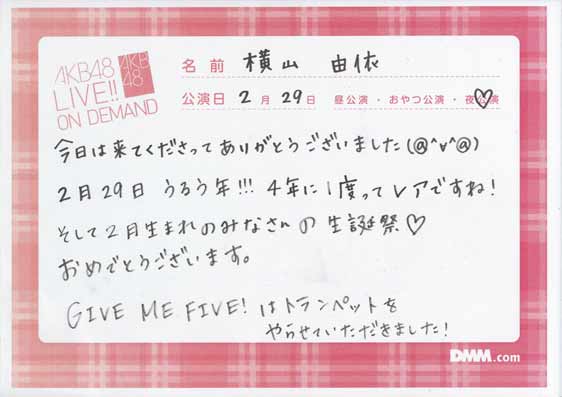 AKB48
LIVE!!
ON DEMAND
AKB
48
名前 横山 由依
公演日 2月29日 昼公演・おやつ公演・夜公演
今日は来てくださってありがとうございました(@^∨^@)
2月29日 うるう年!!! 4年に1度ってレアですね!
そして2月生まれのみなさんの生誕祭♡
おめでとうございます。
GIVE ME FIVE! はトランペットを
やらせていただきました!
DMM.com